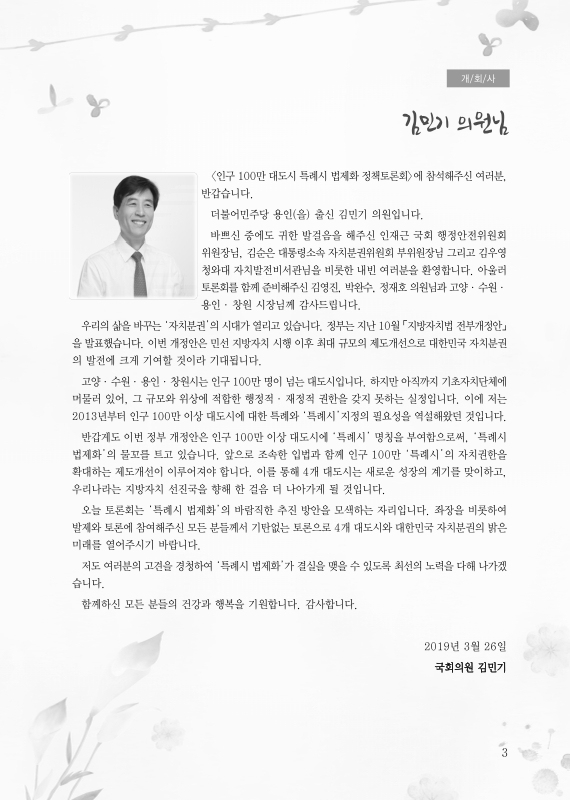 개/회/사
김민기 의원님
〈인구 100만 대도시 특례시 법제화 정책토론회〉에 참석해주신 여러분,
반갑습니다.
더불어민주당 용인(을) 출신 김민기 의원입니다.
바쁘신 중에도 귀한 발걸음을 해주신 인재근 국회 행정안전위원회
위원장님, 김순은 대통령소속 자치분권위원회 부위원장님 그리고 김우영
청와대 자치발전비서관님을 비롯한 내빈 여러분을 환영합니다. 아울러
토론회를 함께 준비해주신 김영진, 박완수, 정재호 의원님과 고양 · 수원 ·
용인 · 창원 시장님께 감사드립니다.
우리의 삶을 바꾸는 ‘자치분권’의 시대가 열리고 있습니다. 정부는 지난 10월 「지방자치법 전부개정안」
을 발표했습니다. 이번 개정안은 민선 지방자치 시행 이후 최대 규모의 제도개선으로 대한민국 자치분권
의 발전에 크게 기여할 것이라 기대됩니다.
고양 · 수원 · 용인 · 창원시는 인구 100만 명이 넘는 대도시입니다. 하지만 아직까지 기초자치단체에
머물러 있어, 그 규모와 위상에 적합한 행정적 · 재정적 권한을 갖지 못하는 실정입니다. 이에 저는
2013년부터 인구 100만 이상 대도시에 대한 특례와 ‘특례시’지정의 필요성을 역설해왔던 것입니다.
반갑게도 이번 정부 개정안은 인구 100만 이상 대도시에 ‘특례시’ 명칭을 부여함으로써, ‘특례시
법제화’의 물꼬를 트고 있습니다. 앞으로 조속한 입법과 함께 인구 100만 ‘특례시’의 자치권한을
확대하는 제도개선이 이루어져야 합니다. 이를 통해 4개 대도시는 새로운 성장의 계기를 맞이하고,
우리나라는 지방자치 선진국을 향해 한 걸음 더 나아가게 될 것입니다.
오늘 토론회는 ‘특례시 법제화’의 바람직한 추진 방안을 모색하는 자리입니다. 좌장을 비롯하여
발제와 토론에 참여해주신 모든 분들께서 기탄없는 토론으로 4개 대도시와 대한민국 자치분권의 밝은
미래를 열어주시기 바랍니다.
저도 여러분의 고견을 경청하여 ‘특례시 법제화’가 결실을 맺을 수 있도록 최선의 노력을 다해 나가겠
습니다.
함께하신 모든 분들의 건강과 행복을 기원합니다. 감사합니다.
2019년 3월 26일
국회의원 김민기
3